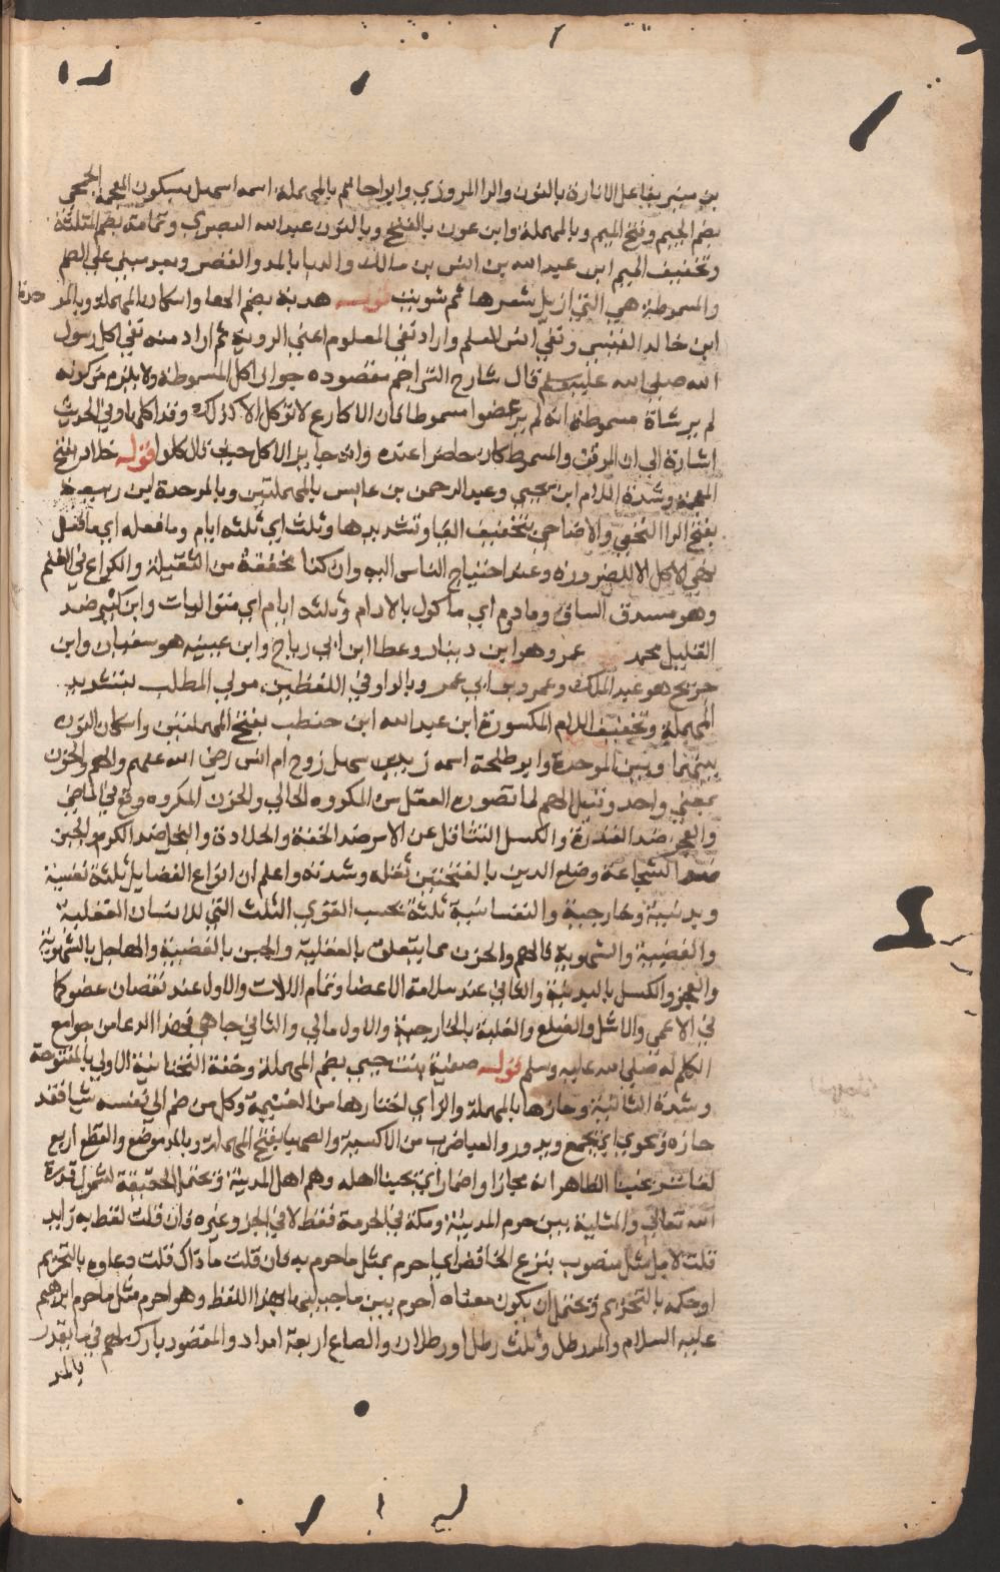 بن منير بفاعل الانارة بالنون والرا المروزي وابو حاتم بالمهملة اسمه اسهل بسكون المعجمة الجمحي
بضم الجيم وفتح الميم وبالمهملة وابن عون بالفتح وبالنون عبد الله البصري وثمامة بضم المثلثة
وتخفيف الميم ابن عبد الله بن انس بن مالك والدبا بالمد والقصر وبعد مبني علي الضم
والمسموطة هي التي ازيل شعرها ثم شويت قوله هدبة بضم الها واسكان المهملة وبالموحدة
ابن خالد القيسي ونفي انس العلم واراد نفي المعلوم اعني الروية ثم اراد منه نفي اكل رسول
الله صلي الله عليه وسلم قال شارح التراجم مقصوده جواز اكل المسموطة ولا يلزم من كونه
لم ير شاة مسموطة انه لم ير عضوا مسموطا فان الاكارع لا توكل الا كذلك وقد اكلها وفي الحديث
اشارة الي ان المرقق والمسموط كان حاضرا عنده وانه جايز الاكل حيث قال كلوا قوله خلاد بفتح
المعجمة وشدة اللام ابن يحيي وعبد الرحمن بن عابس بالمهملتين وبالموحدة ابن ربيعة
بفتح الرا النخعي والاضاحي بتخفيف اليا وتشديدها وثلث اي ثلثة ايام وما فعله اي ما
نهي لاكل الا للضرورة وعند احتياج الناس اليه وان كنا مخففة من الثقيلة والكراع في الغنم
وهو مستدق الساق وما دوم اي ماكول بالادام وثلثة ايام اي متواليات وابن كثير ضد
القليل محمد عمرو هو ابن دينار وعطا ابن ابي رباح وابن عيينه هو سفيان وابن
جريج هو عبد الملك وعمرو بن ابي عمرو بالواو في اللفظين مولي المطلب بتشديد
المهملة وتخفيف اللام المكسورة ابن عبد الله ابن حنطب بفتح المهملتين واسكان النون
بينهما وبين الموحدة وابو طلحة اسمه زيد بن سهل زوج ام انس رضي الله عنهم والهم والحزن
بمعني واحد وقيل الهم لما تصوره العقل من المكروه الحالي والحزن المكروه وقع في الماضي
والعجز ضد القدرة والكسل التثاقل عن الامر ضد الخفة والجلادة والبخل ضد الكرم والجبن
ضد الشجاعة وضلع الدين بالفتحتين ثقله وشدته واعلم ان انواع الفضايل ثلثة نفسية
وبدنية وخارجية والنفسانية ثلثة بحسب القوي الثلث التي للانسان العقلية
والغضبية والشهوية فالهم والحزن مما يتعلق بالعقلية والجبن بالغضبية والبخل بالشهوية
والعجز والكسل بالبدنية والثاني عند سلامة الاعضا وتمام الالات والاول عند نقصان عضو كما
في الاعمي والاشل والضلع والغلبة بالخارجية والاول مالي والثاني جاهي فهذا الدعا من جوامع
الكلم له صلي الله عليه وسلم قوله صفية بنت حيي بضم المهملة وخفة التحتانية الاولي المفتوحة
وشدة الثانية وحازها بالمهملة والزاي اختارها من الغنيمة وكل من ضم الي نفسه شيا فقد
حازه ويحوي اي يجمع ويدور والعبا ضرب من الاكسية والصهبا بفتح المهملة وبالمد موضع والنطع اربع
لغات ويحبنا الظاهر انه مجاز او اضمار اي يحبنا اهله وهم اهل المدينة ويحتمل الحقيقة لشمول قدرة
الله تعالي والمثلية بين حرم المدينة ومكة في الحرمة فقط لا في الجزا وغيره فان قلت لفظ به زايد
قلت لا بل مثل منصوب بنزع الخافض اي احرم بمثل ما حرم به فان قلت ما ذاك قلت دعاوه بالتحريم
او حكمه بالتحريم ويحتمل ان يكون معناه احرم بين ما جبليها بهذا اللفظ وهو احرم مثل ما حرم ابرهيم
عليه السلام والمد رطل وثلث رطل او رطلان والصاع اربعة امداد والمقصود بارك لهم في ما يقدر
بالمد